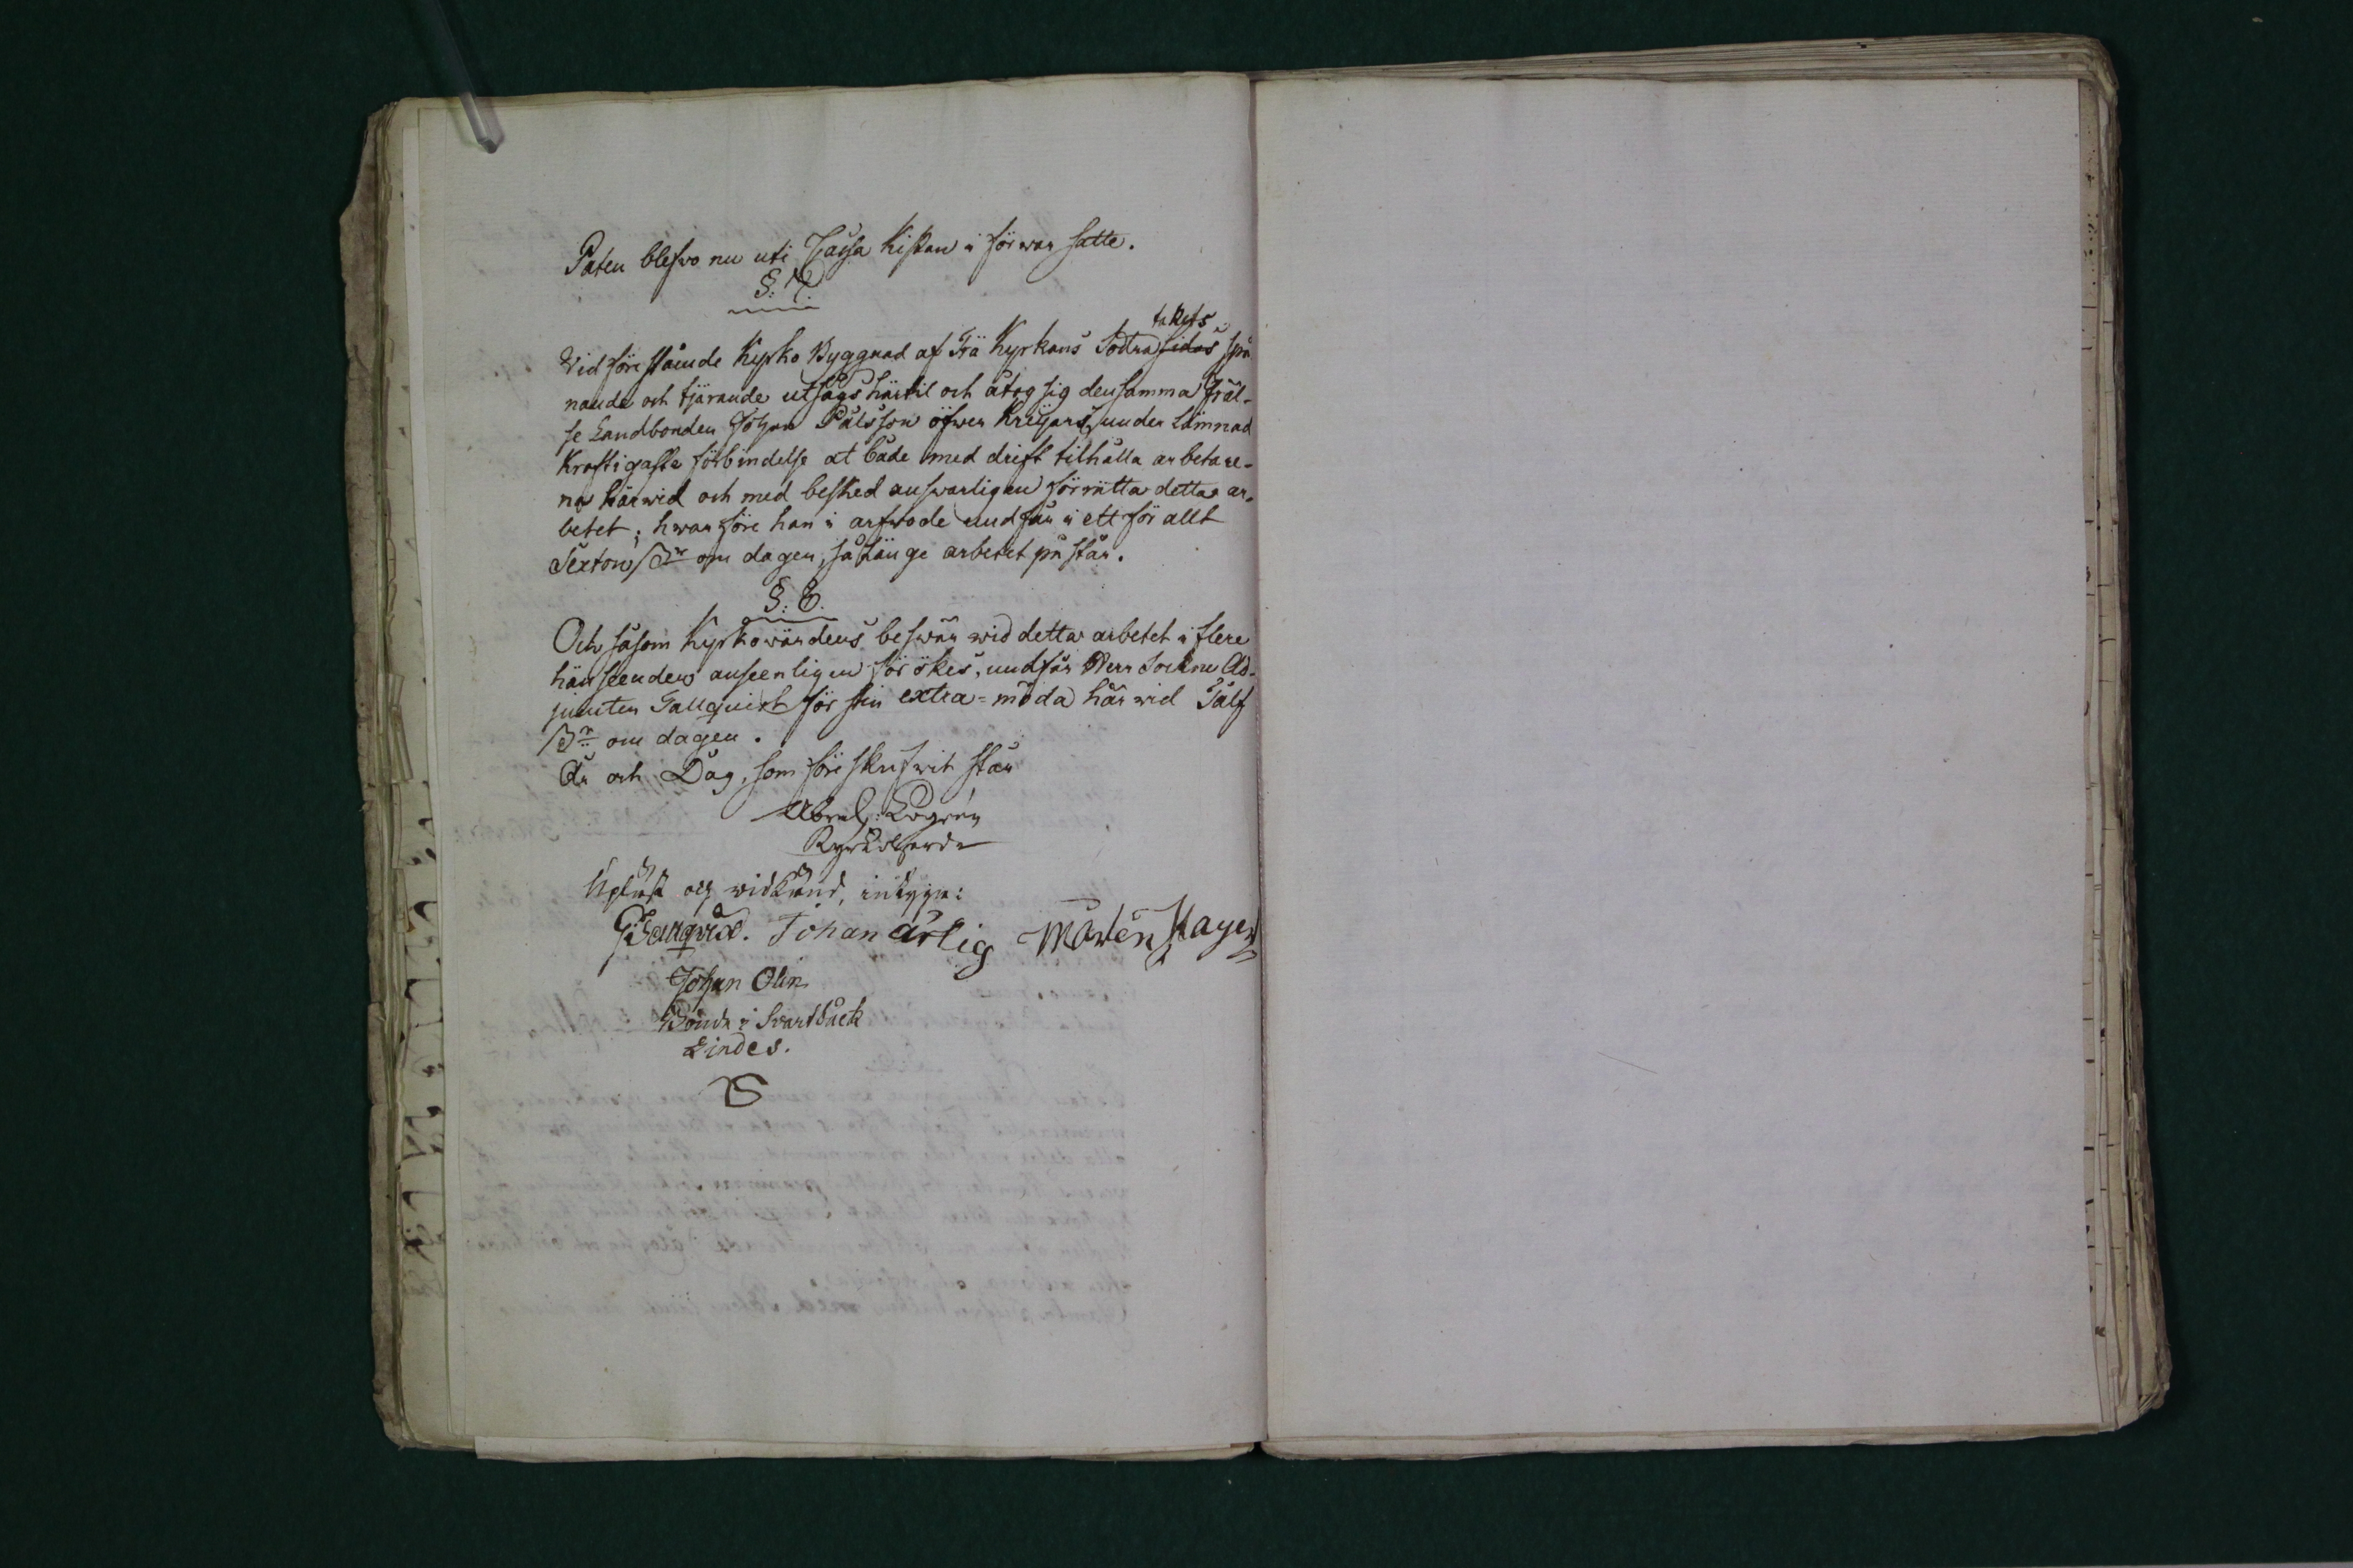 Paten blefwo nu uti Cassa Kistan i förwar satte.
§: 7.
takets
Vid förestående Kyrko Byggnad af Trä Kyrkans Södra sidas spå
nande och tjärande utsågs härtil och åtog sig densamma Fräl-
se Landbonden Johan Pålsson öfwer Kreijars, under lämnad
Kraftigaste förbindelse at både med drift tilhålla arbetare-
na härwid och med besked answarligen förrätta detta ar-
betet; hwarföre han i arfwode undfår i ett för allt
Sexton ßr om dagen, så länge arbetet påstår.
§: 8.
Och såsom Kyrkowärdens beswär wid detta arbetet i flere
hänseenden anseenligen förökes, undfår Herr Sockne Ad-
juncten Tallquist för sin extra-möda härwid Tålf
ßr om dagen.
År och Dag, som föreskrifwit står
Abrah: Logrén
Kyrkoherde
Upläst och widkänd, intyga:
Tallqvist. Johan ärlig Mårten Hager
Johan Olin
Bonde i Svartbäck
Lindes.